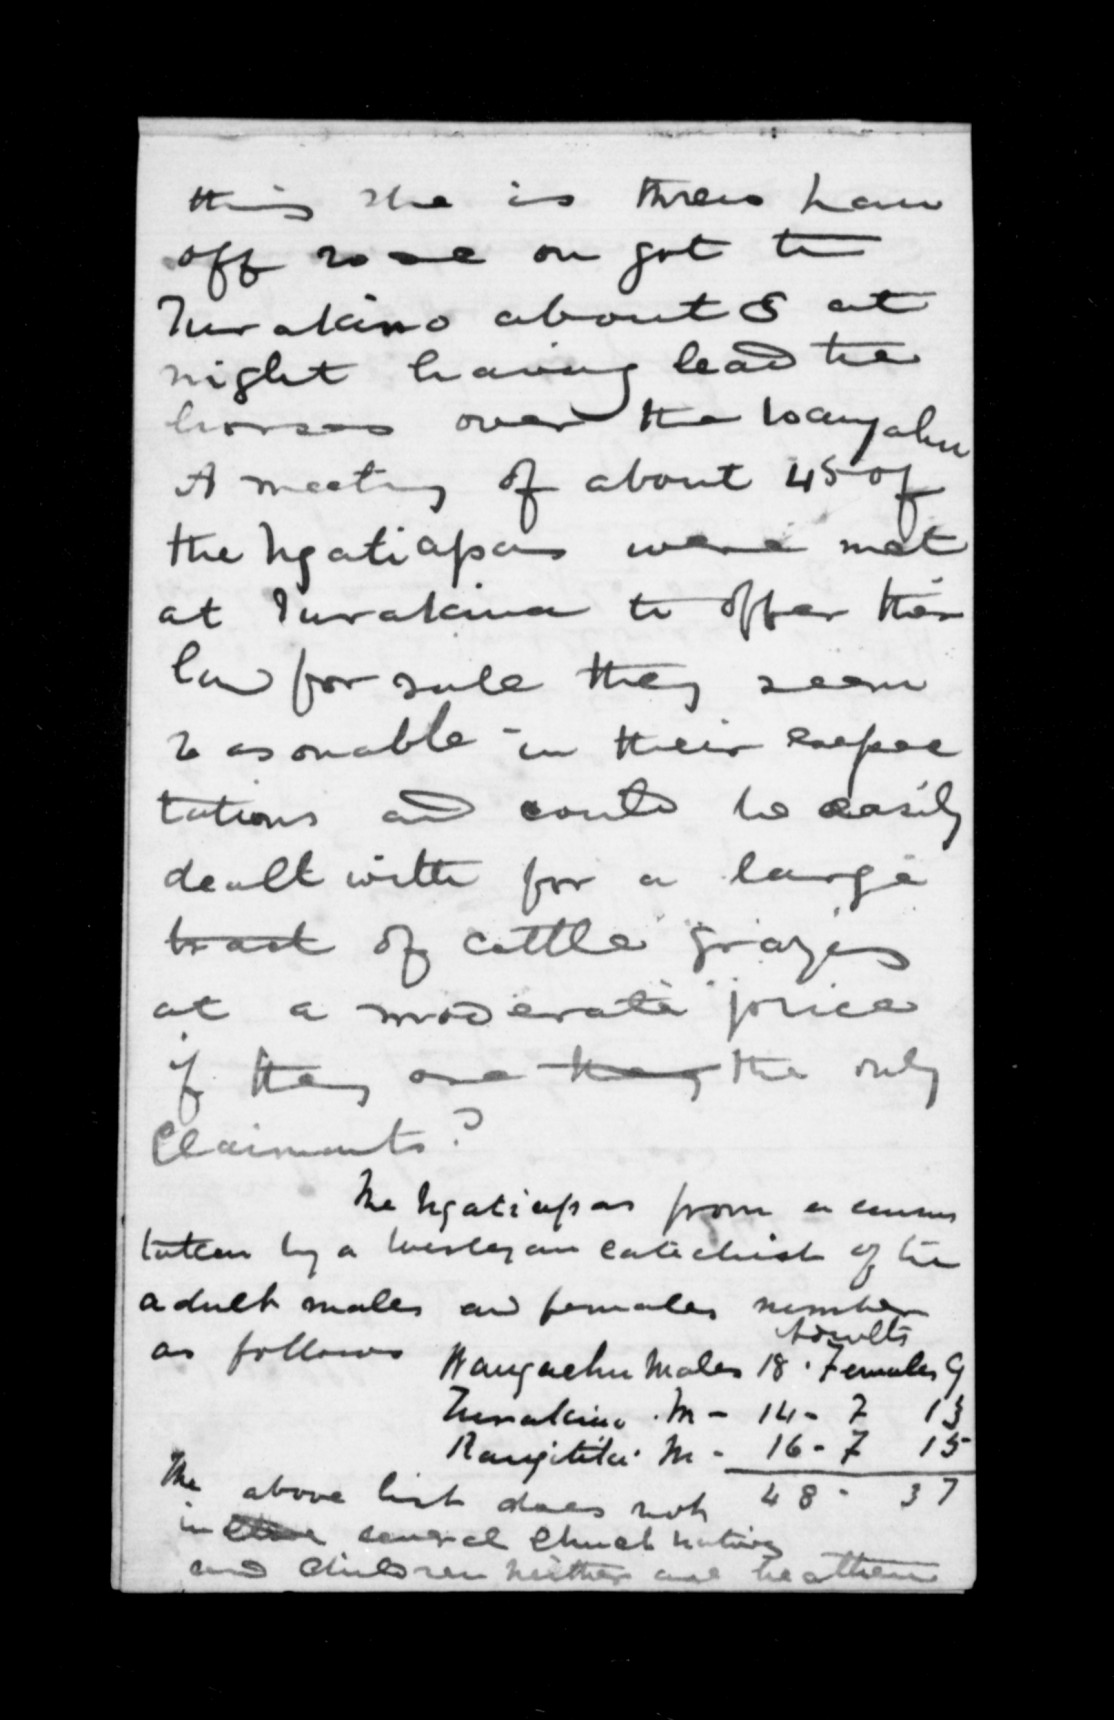 this she is threw have
off rode on got to
Turakino about 8 at
night having lead the
horses over the Wangahu
A meeting of about 45 of
the Ngatiapas were met
at Turakina to offer their
land for sale they seem
reasonable in their expec
tations and could be easily
dealt with for a large
tract of cattle grazing
at a moderate price
if they are they the only
Claimants?
The Ngatiapas from a census
taken by a Wesleyan catechist of the
adult males and females number
Adults
as follows Wangaehu Males 18 · Females 9
Turakina · M - 14 - F 13
Rangitikei M - 16 - F 15
48 - 37
The above list does not
in several Church natives
and children neither are heathen